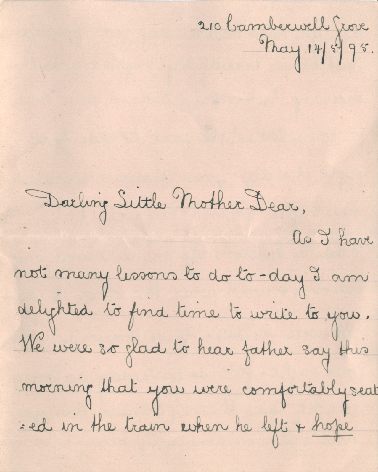 210 Camberwell Grove
May 14/5/95.
Darling Little Mother Dear,
As I have
not many lessons to do to-day I am
delighted to find time to write to you.
We were so glad to hear father say this
morning that you were comfortably seat
:ed in the train when he left + hope